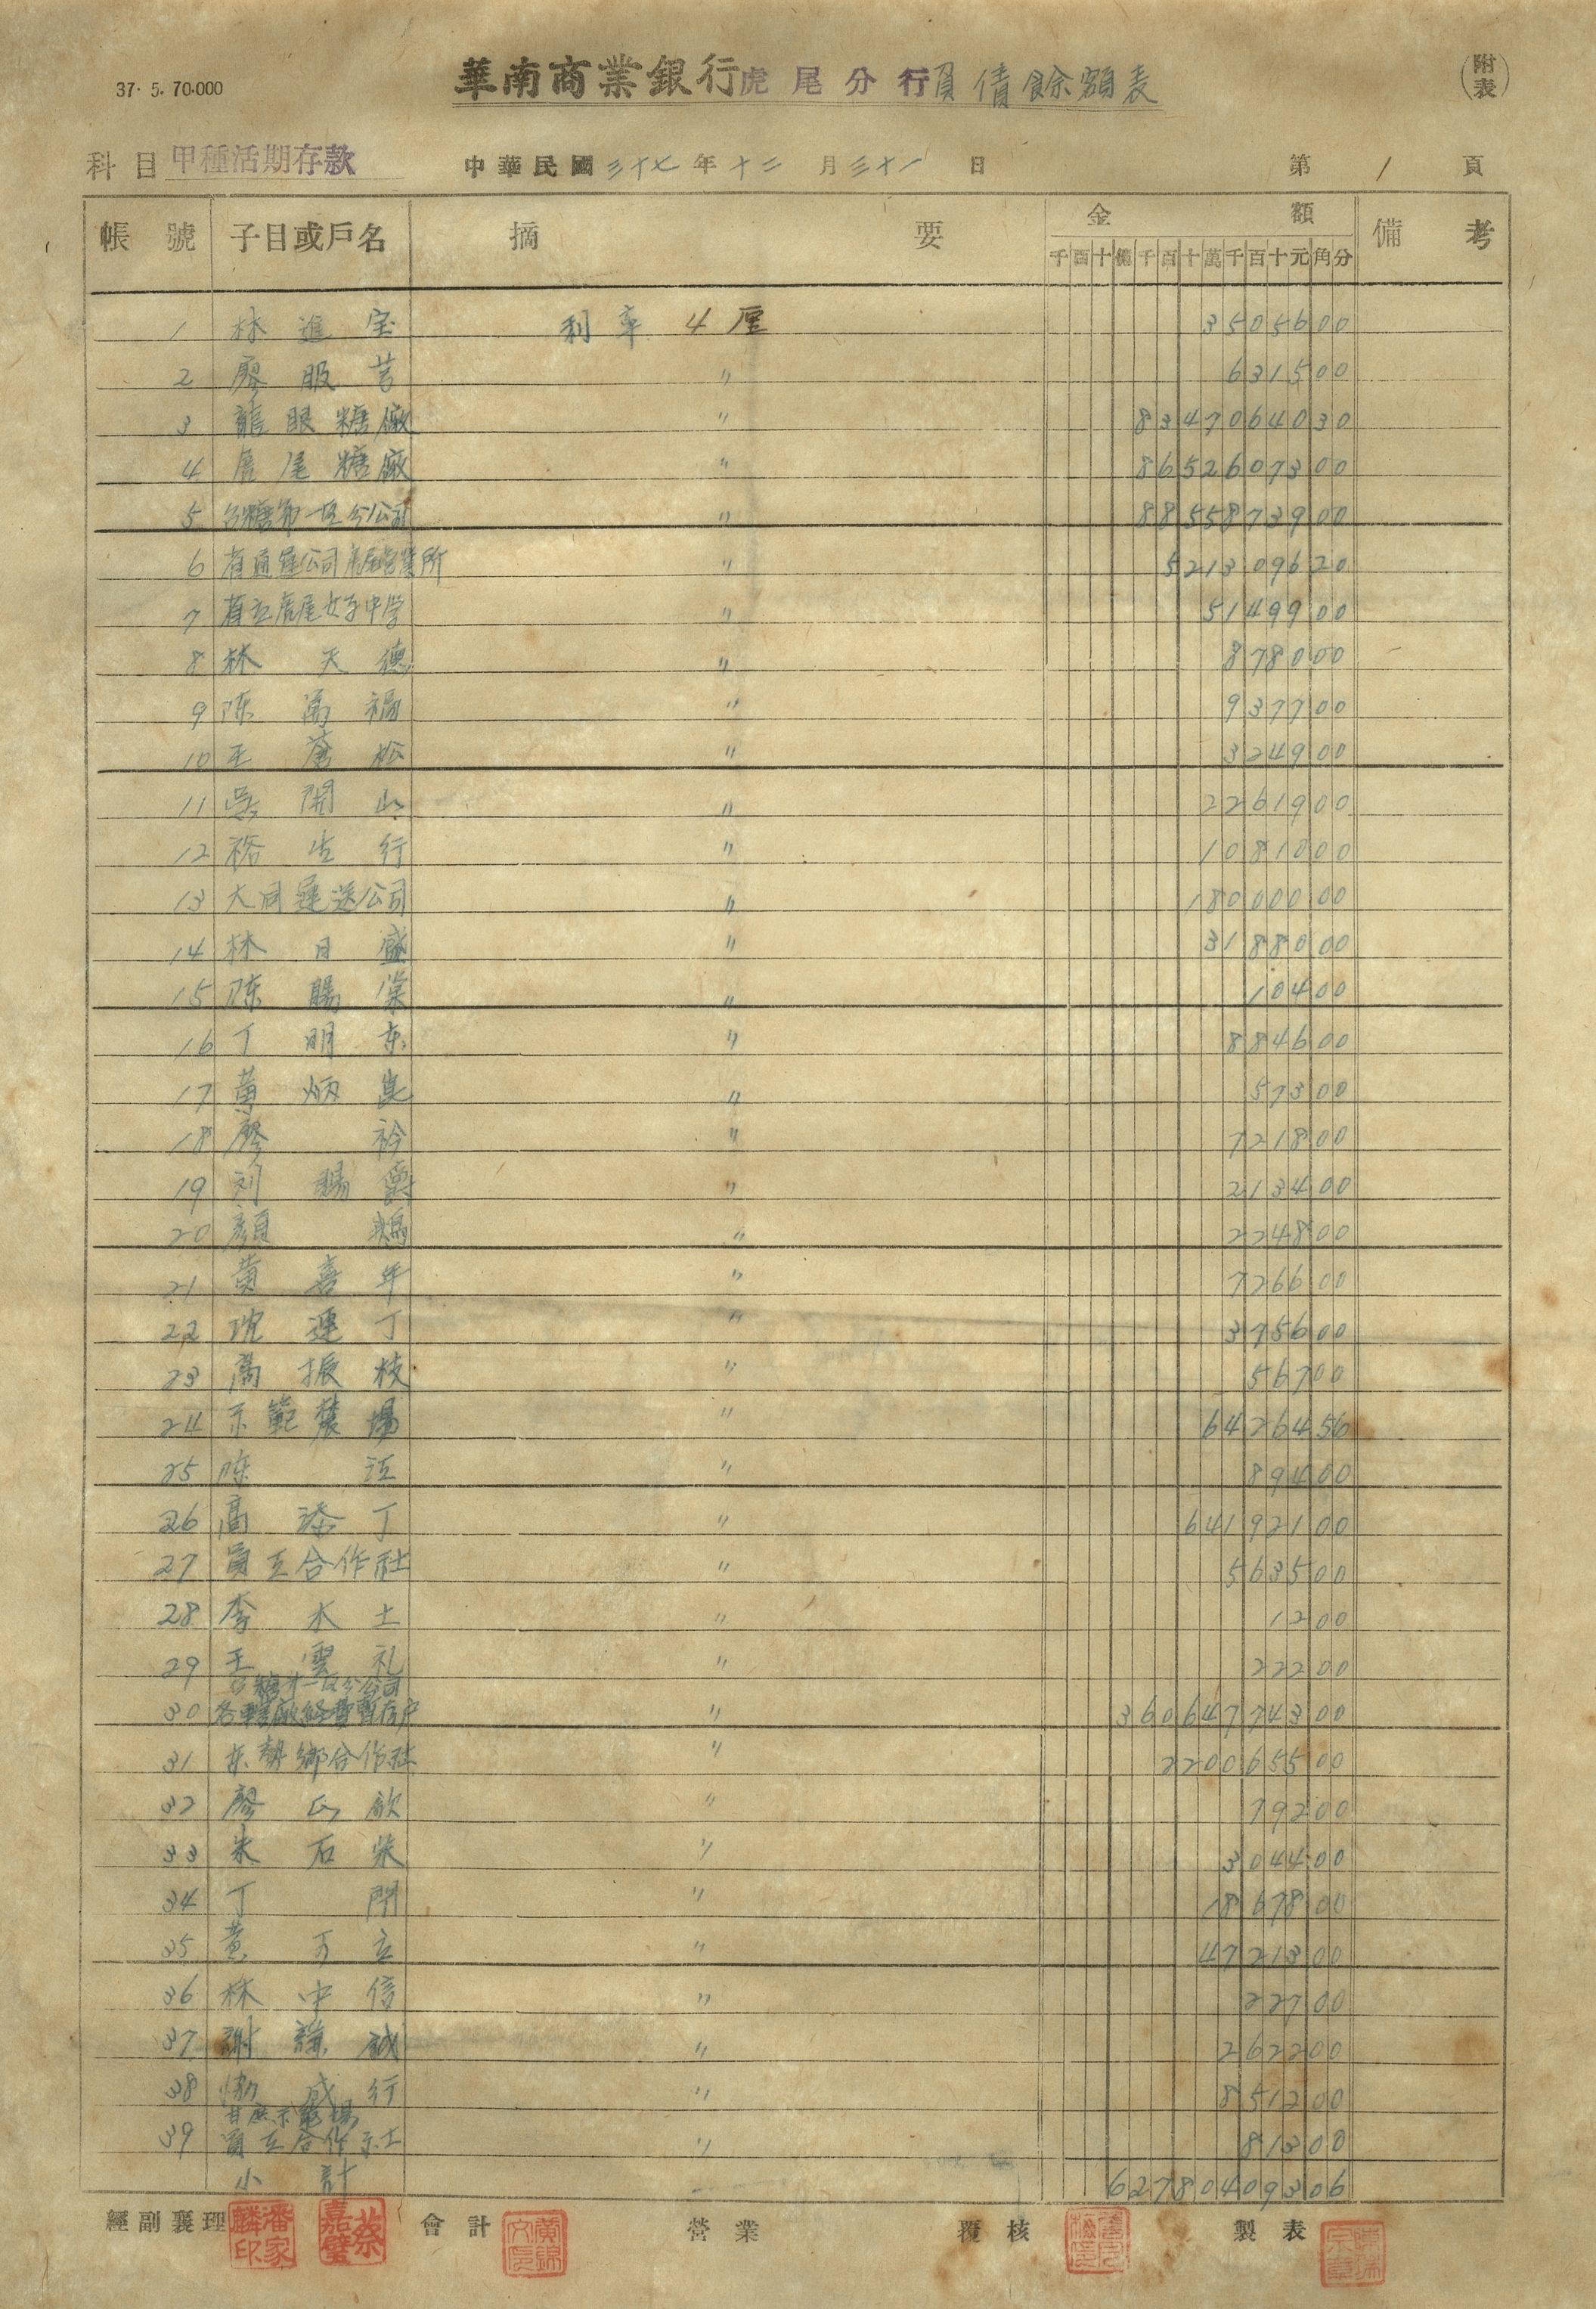 37. 5. 70.000
華南商業銀行虎尾分行負債餘額表
(附表)
科目 甲種活期存款 中華民國三十七年十二月三十一日 第 1 頁
帳號 子目或戶名 摘要 金額 備考
千百十億千百十萬千百十元角分
1 林進宝 利率4厘 3505600
2 廖服 〃 631500
3 龍眼糖廠 〃 8347064030
4 虎尾糖廠 〃 8652607300
5 台糖第一区分公司 〃 8855873900
6 省通運公司虎尾营業所 〃 521309620
7 省立虎尾女子中学 〃 5149900
8 林天德 〃 878000
9 陈萬福 〃 937700
10 王萬松 〃 324900
11 吳開山 〃 2261900
12 裕生行 〃 1081000
13 大同運送公司 〃 18000000
14 林日盛 〃 3188000
15 陈賜業 〃 10400
16 丁明东 〃 884600
17 黃炳崑 〃 57300
18 廖衿 〃 721800
19 刘賜爵 〃 213400
20 顏鵝 〃 224800
21 黃喜年 〃 726600
22 沈連丁 〃 375600
23 萬振枝 〃 56700
24 示範農場 〃 6426456
25 陈江 〃 89400
26 高添丁 〃 64192100
27 員工合作社 〃 563500
28 李木土 〃 1200
29 王雲礼 〃 22200
台糖第一区分公司
30 各糖廠経費暫存户 〃 36064774300
31 东勢鄉合作社 〃 220065500
32 廖氏 〃 79200
33 朱石柴 〃 304400
34 丁開 〃 1867800
35 黃万立 〃 4721300
36 林中信 〃 22700
37 謝誠 〃 262200
38 成行 〃 851200
示範場
39 員工合作社 〃 81300
小計 62780409306
經副襄理 潘家麟印 蔡嘉璧 會計 黃錦文 營業 覆核 製表